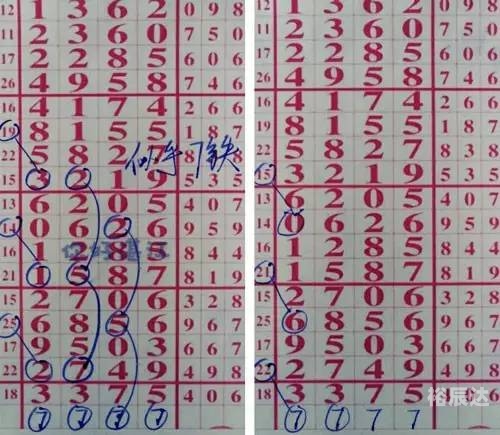 12 1 3 6 2 0 9 8
11 2 3 6 0 7 5 0
17 2 2 8 5 6 0 6
26 4 9 5 8 7 4 6
16 4 1 7 4 2 6 6
19 8 1 5 5 1 8 7
22 5 8 2 8 8
似乎7铁
15 3 2 1 9 5 3 5
13 6 2 0 5 4 0 7
14 0 6 2 6 9 5 9
16 1 2 8 5 8 4 4
21 1 5 8 7 8 1 9
15 2 7 0 6 3 2 8
25 6 8 5 6 9 6 7
17 9 5 0 3 6 6 7
22 2 7 4 9 4 9 8
18 3 3 7 5 4 0 6
7 7 7 7
12 1 3 6 2 0 9 8
11 2 3 6 0 7 5 0
17 2 2 8 5 6 0 6
26 4 9 5 8 7 4 6
16 4 1 7 4 2 6 6
19 8 1 5 5 1 8 7
22 5 8 2 7 8 3 8
15 3 2 1 9 5 3 5
13 6 2 0 5 4 0 7
14 0 6 2 6 9 5 9
16 1 2 8 5 8 4 4
21 1 5 8 7 8 1 9
15 2 7 0 6 3 2 8
6 8 5 6 9 6 7
17 9 5 0 3 6 6 7
22 2 7 4 9 4 9 8
18 3 3 7 5 4 0 6
7 7 7 7
裕辰达